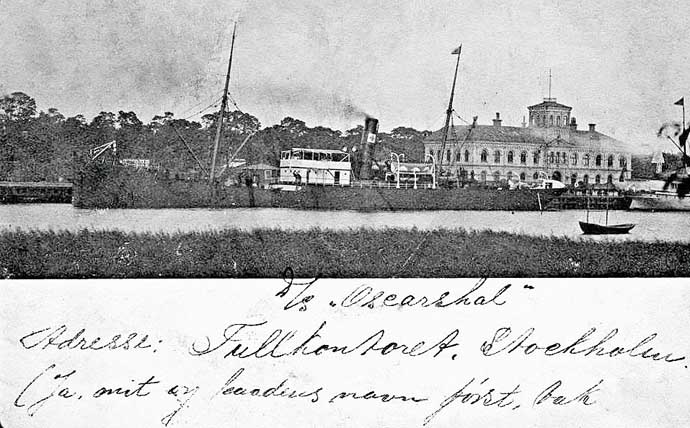 D/s „Oscarshal"
Adresse: Tullkontoret, Stockholm.
(Ja, mit og baadens navn først, bak